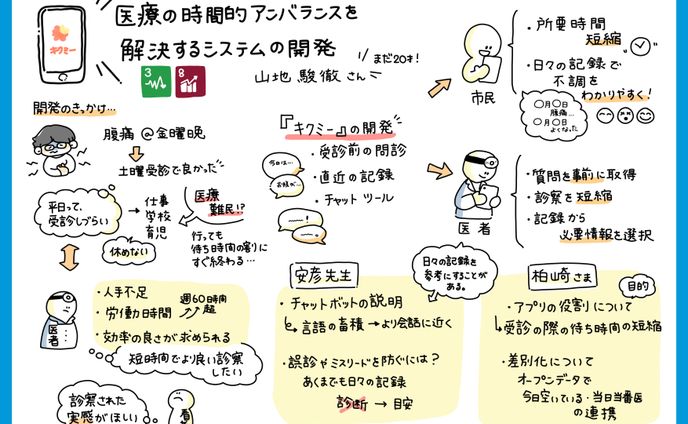 キクミー
医療の時間的アンバランスを
解決するシステムの開発
3
8
山地 駿徹さん
まだ20才!
開発のきっかけ…
腹痛 @金曜晩
土曜受診で良かった
平日って、
受診しづらい
仕事
学校
育児
休めない
医療
難民!?
行っても
待ち時間の割りに
すぐ終わる…
医者
・人手不足
・労働時間
週60時間
超
・効率の良さが求められる
短時間でより良い診察
したい
診察された
実感がほしい
『キクミー』の開発
・受診前の問診
・直近の記録
・チャットツール
今日は…
お熱が…
市民
・所要時間
短縮
・日々の記録で
不調を
わかりやすく!
〇月〇日
腹痛…
〇月〇日
よくなった
医者
・質問を事前に取得
・診察を短縮
・記録から
必要情報を選択
日々の記録を
参考にすることが
ある。
安彦先生
・チャットボットの説明
言語の蓄積→より会話に近く
・誤診やミスリードを防ぐには?
あくまでも日々の記録
診断 → 目安
柏崎さま
目的
・アプリの役割について
受診の際の待ち時間の短縮
・差別化について
オープンデータで
今日空いている・当日当番医
の連携